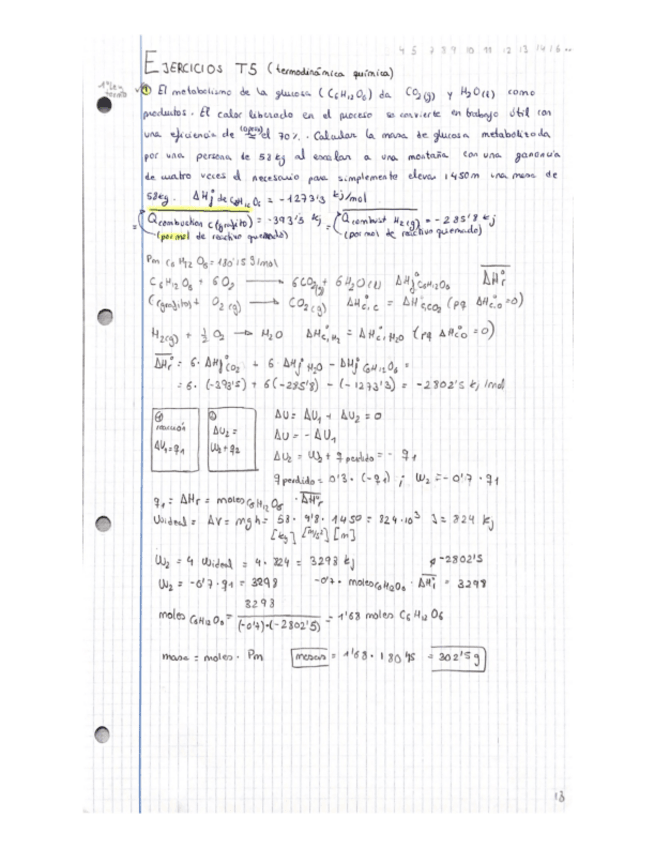 4 5 7 8 9 10 11 12 13 14 16
EJERCICIOS T5 (termodinámica química)
① El metabolismo de la glucosa (C6H12O6) da CO2(g) y H2O(l) como
productos. El calor liberado en el proceso se convierte en trabajo útil con
una eficiencia de el 70%. Calcular la masa de glucosa metabolizada
por una persona de 58 kg al escalar a una montaña con una ganancia
de cuatro veces el necesario para simplemente elevar 1450m una masa de
58kg. ΔHf° de C6H12O6 = -1273'3 kj/mol
= Q combustion C(grafito) = -393'5 kj = Q combust H2(g) = -285'8 kj
(por mol de reactivo quemado) (por mol de reactivo quemado)
Pm C6H12O6 = 180'15 g/mol
C6H12O6 + 6O2 → 6CO2(g) + 6H2O(l) ΔHf°C6H12O6 ΔHr°
C(grafito) + O2(g) → CO2(g) ΔHc°,C = ΔHf°,CO2 (pq ΔHf°,O=0)
H2(g) + ½ O2 → H2O ΔHc°,H2 = ΔHf°,H2O (pq ΔHf°,O = 0)
ΔHr° = 6 · ΔHf°CO2 + 6 · ΔHf°H2O - ΔHf°C6H12O6 =
= 6 · (-393'5) + 6(-285'8) - (-1273'3) = -2802'5 kj/mol
reacción
ΔU1=q1
ΔU2 =
W2+q2
ΔU = ΔU1 + ΔU2 = 0
ΔU = -ΔU1
ΔU2 = W2 + q perdido = - q1
q perdido = 0'3 · (-q1) ; W2 = -0'7 · q1
q1 = ΔHr = moles C6H12O6 · ΔHr°
Wideal = ΔV = mgh = 58 · 9'8 · 1450 = 824·10³ J = 824 kj
[kg] [m/s²] [m]
W2 = 4 Wideal = 4 · 824 = 3298 kj -2802'5
W2 = -0'7 · q1 = 3298 -0'7 · moles C6H12O6 · ΔHr° = 3298
moles C6H12O6 = 3298 / (-0'7)·(-2802'5) = 1'68 moles C6H12O6
masa = moles · Pm = 1'68 · 180'15 = 302'5 g
18